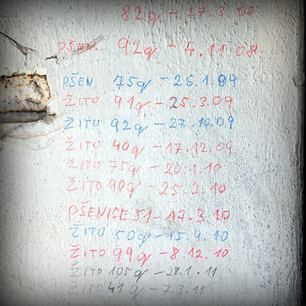 82q - 17.3.08
PŠEN. 92q - 4.11.08
PŠEN 75q - 26.1.09
ŽITO 91q - 25.3.09
ŽITO 92q - 27.10.09
ŽITO 40q - 17.12.09
ŽITO 75q - 20.1.10
ŽITO 90q - 25.2.10
PŠENICE 51 - 17.3.10
ŽITO 50q - 15.9.10
ŽITO 99q - 8.12.10
ŽITO 105q - 28.1.11
ŽITO 41q - 7.3.11